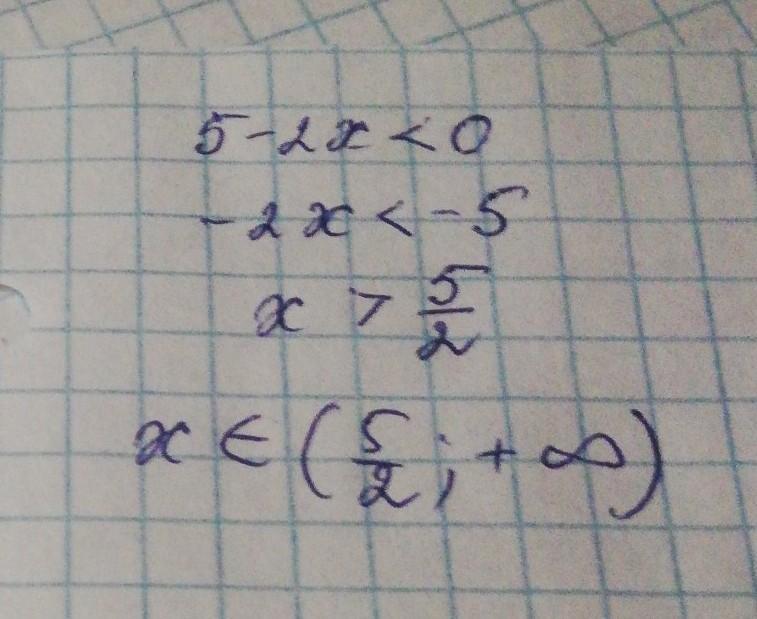 5-2x<0
-2x<-5
x > 5/2
x ∈ (5/2; +∞)